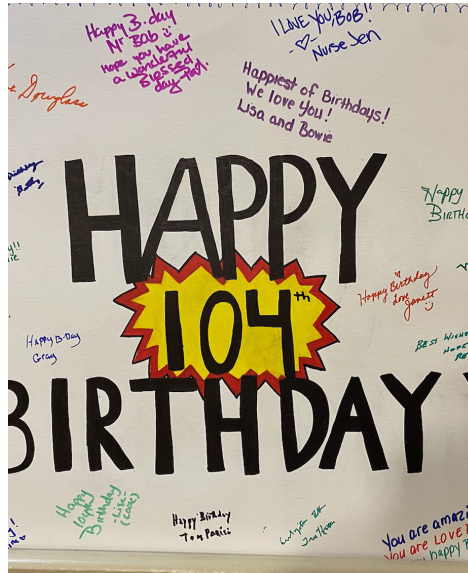 Happy B-day
Mr Bob
Hope you have
a wonderful
Blessed
day
I LOVE YOU, BOB!!
Nurse Jen
Happiest of Birthdays!
We love You!
Lisa and Bowie
Douglass
HAPPY
104th
BIRTHDAY
Happy
Happy Birthday
love
Janett
Happy B-Day
Gray
BEST
Happy
104th
Birthday
Lisa
(COOK)
Happy Birthday
Tom Parisi
You are
You are
happy